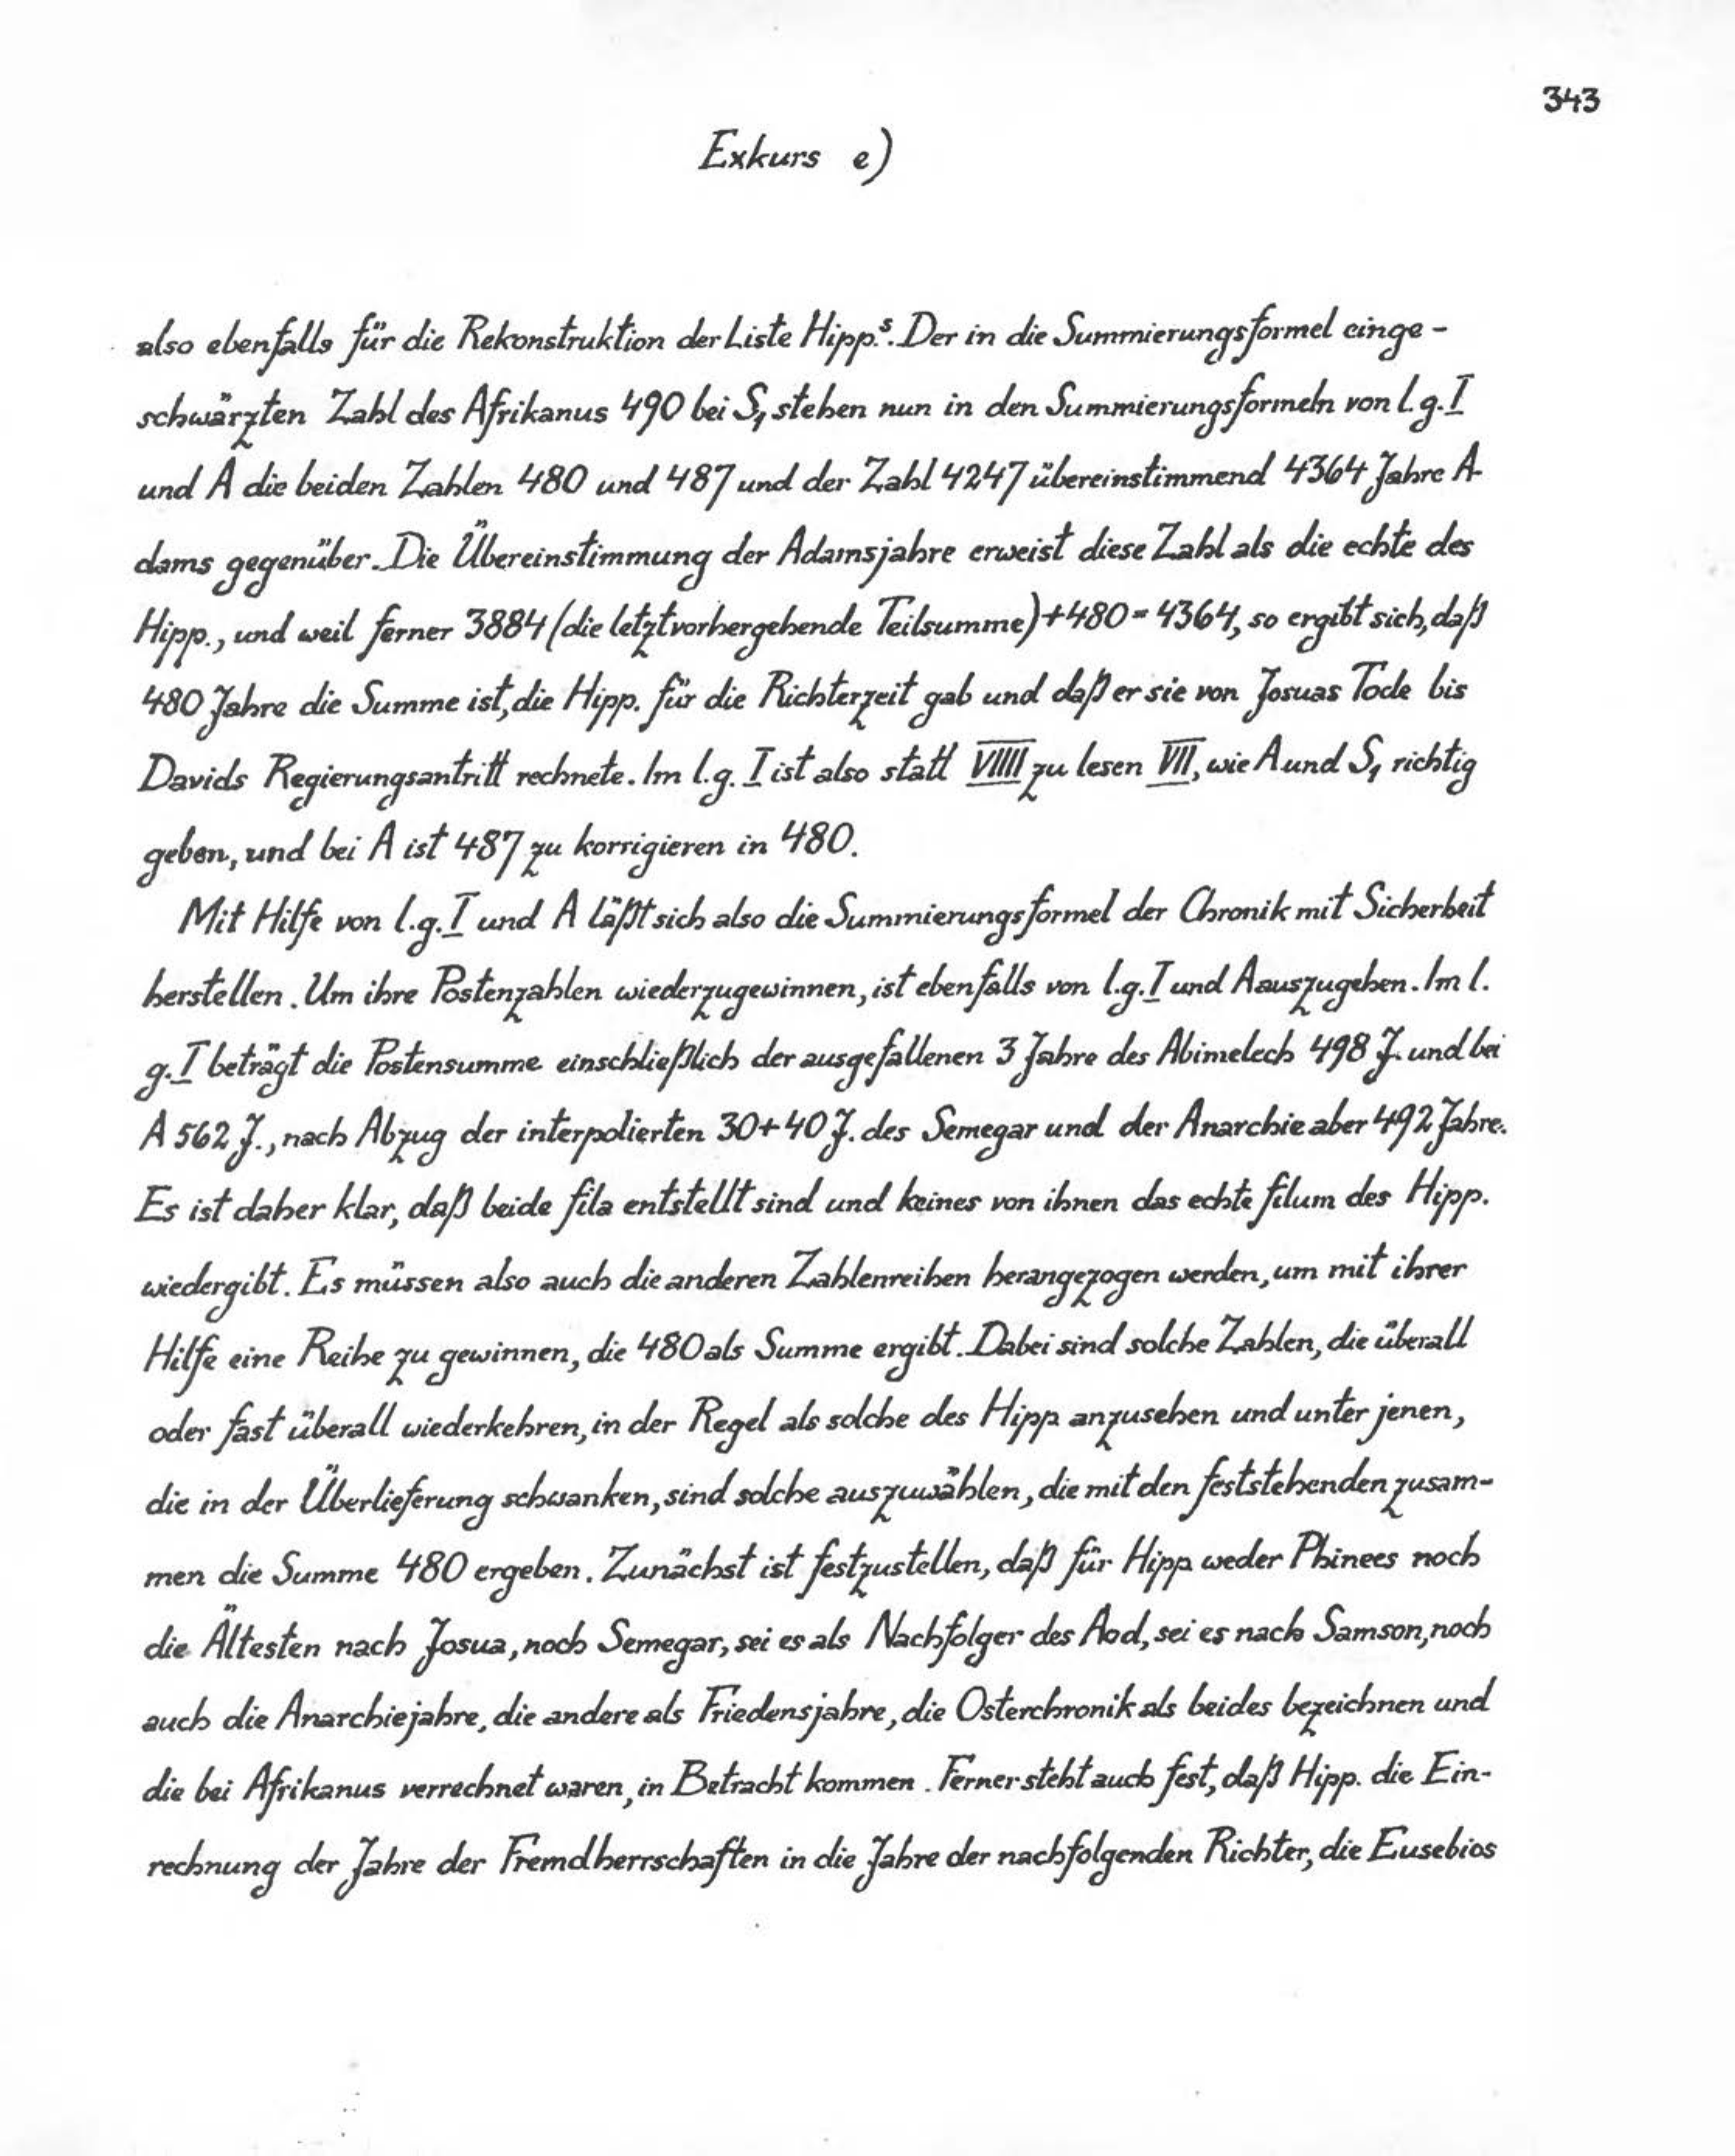 343
Exkurs e)
also ebenfalls für die Rekonstruktion der Liste Hipp.s. Der in die Summierungsformel einge-
schwärzten Zahl des Afrikanus 490 bei S₁ stehen nun in den Summierungsformeln von l.g. I
und A die beiden Zahlen 480 und 487 und der Zahl 4247 übereinstimmend 4364 Jahre A-
dams gegenüber. Die Übereinstimmung der Adamsjahre erweist diese Zahl als die echte des
Hipp., und weil ferner 3884 (die letztvorhergehende Teilsumme) + 480 = 4364, so ergibt sich, daß
480 Jahre die Summe ist, die Hipp. für die Richterzeit gab und daß er sie von Josuas Tode bis
Davids Regierungsantritt rechnete. Im l.g. I ist also statt VIIII zu lesen VII, wie A und S₁ richtig
geben, und bei A ist 487 zu korrigieren in 480.
Mit Hilfe von l.g. I und A läßt sich also die Summierungsformel der Chronik mit Sicherheit
herstellen. Um ihre Postenzahlen wiederzugewinnen, ist ebenfalls von l.g. I und A auszugehen. Im l.
g. I beträgt die Postensumme einschließlich der ausgefallenen 3 Jahre des Abimelech 498 J. und bei
A 562 J., nach Abzug der interpolierten 30+40 J. des Semegar und der Anarchie aber 492 Jahre.
Es ist daher klar, daß beide fila entstellt sind und keines von ihnen das echte filum des Hipp.
wiedergibt. Es müssen also auch die anderen Zahlenreihen herangezogen werden, um mit ihrer
Hilfe eine Reihe zu gewinnen, die 480 als Summe ergibt. Dabei sind solche Zahlen, die überall
oder fast überall wiederkehren, in der Regel als solche des Hipp. anzusehen und unter jenen,
die in der Überlieferung schwanken, sind solche auszuwählen, die mit den feststehenden zusam-
men die Summe 480 ergeben. Zunächst ist festzustellen, daß für Hipp. weder Phinees noch
die Ältesten nach Josua, noch Semegar, sei es als Nachfolger des Aod, sei es nach Samson, noch
auch die Anarchiejahre, die andere als Friedensjahre, die Osterchronik als beides bezeichnen und
die bei Afrikanus verrechnet waren, in Betracht kommen. Ferner steht auch fest, daß Hipp. die Ein-
rechnung der Jahre der Fremdherrschaften in die Jahre der nachfolgenden Richter, die Eusebios